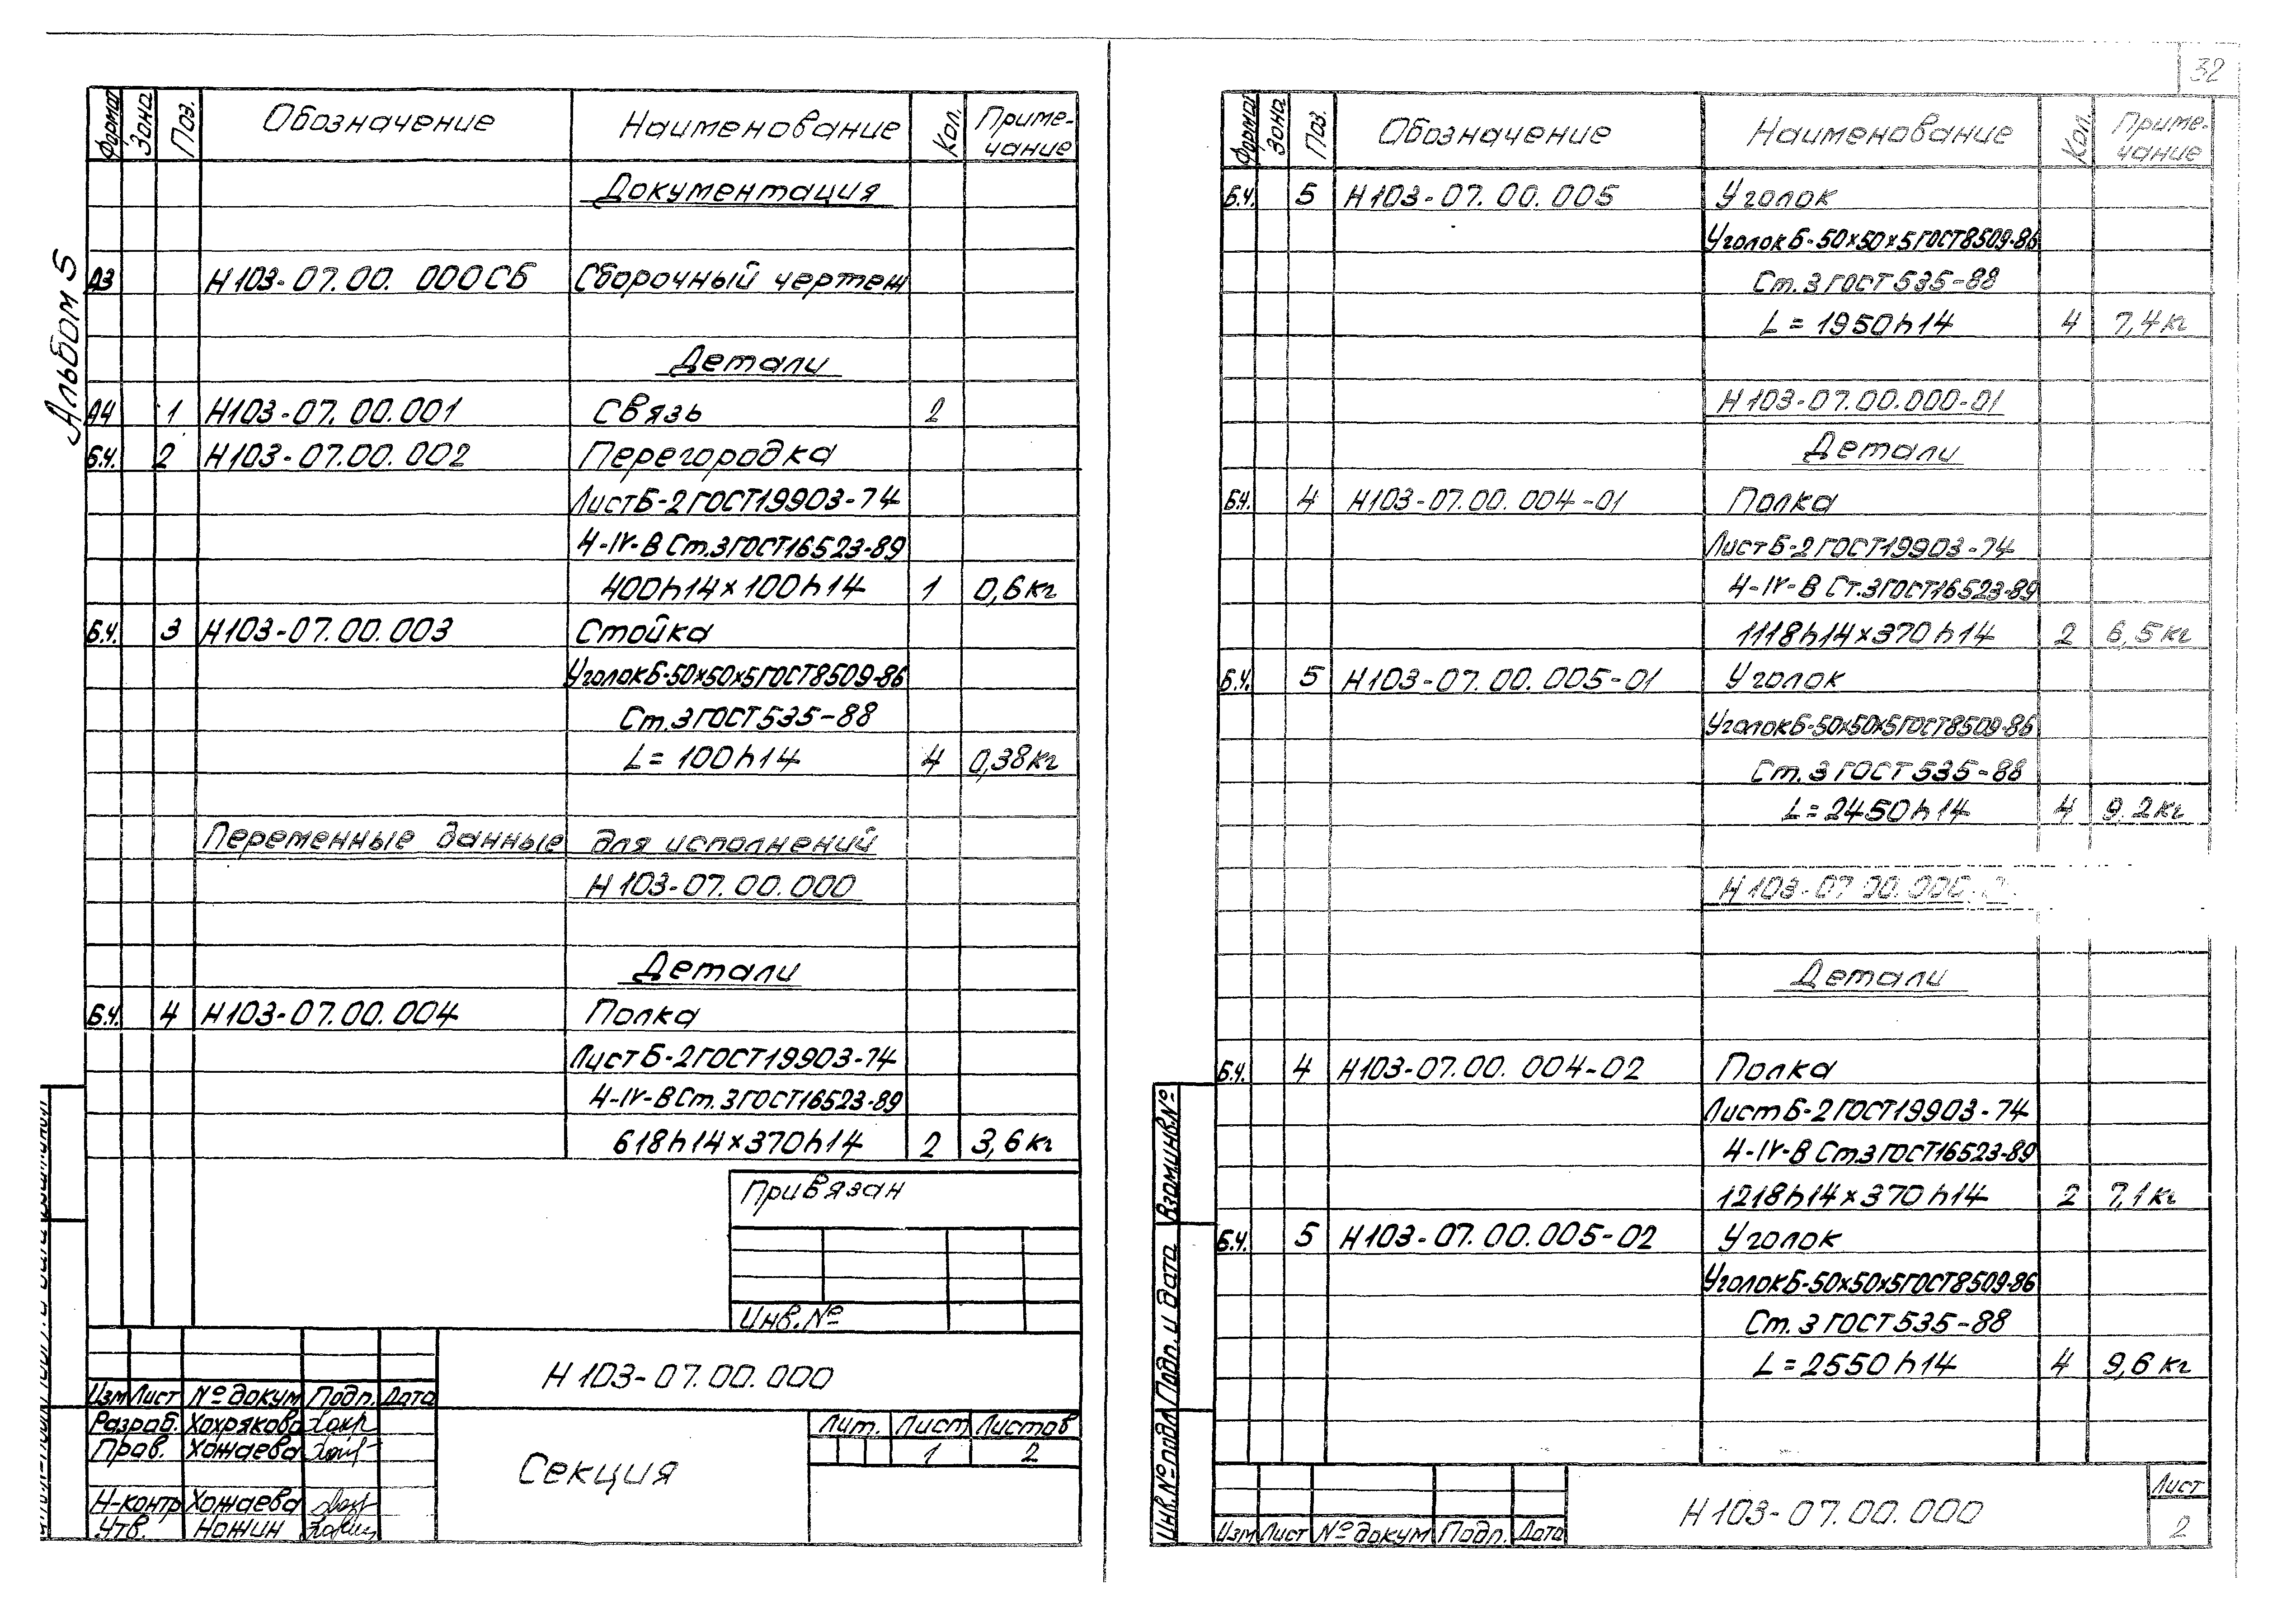 Альбом 5
Формат Зона Поз. Обозначение Наименование Кол. Приме-
чание
Документация
А3 Н103-07.00.000СБ Сборочный чертеж
Детали
А4 1 Н103-07.00.001 Связь 2
Б.Ч. 2 Н103-07.00.002 Перегородка
Лист Б-2 ГОСТ19903-74
4-IV-В Ст.3 ГОСТ16523-89
400h14×100h14 1 0,6кг
Б.Ч. 3 Н103-07.00.003 Стойка
Уголок Б-50×50×5 ГОСТ8509-86
Ст.3 ГОСТ 535-88
L=100h14 4 0,38кг
Переменные данные для исполнений
Н103-07.00.000
Детали
Б.Ч. 4 Н103-07.00.004 Полка
Лист Б-2 ГОСТ19903-74
4-IV-В Ст.3 ГОСТ16523-89
618h14×370h14 2 3,6кг
Привязан
Инв.№
Н103-07.00.000
Изм Лист № докум Подп. Дата
Разраб. Хохрякова
Пров. Хожаева
Н-контр Хожаева
Утв. Ножин
Секция
Лит. Лист Листов
1 2
32
Формат Зона Поз. Обозначение Наименование Кол. Приме-
чание
Б.Ч. 5 Н103-07.00.005 Уголок
Уголок Б-50×50×5 ГОСТ8509-86
Ст.3 ГОСТ 535-88
L=1950h14 4 7,4кг
Н103-07.00.000-01
Детали
Б.Ч. 4 Н103-07.00.004-01 Полка
Лист Б-2 ГОСТ19903-74
4-IV-В Ст.3 ГОСТ16523-89
1118h14×370h14 2 6,5кг
Б.Ч. 5 Н103-07.00.005-01 Уголок
Уголок Б-50×50×5 ГОСТ8509-86
Ст.3 ГОСТ 535-88
L=2450h14 4 9.2кг
Н103-07.00.000-
Детали
Б.Ч. 4 Н103-07.00.004-02 Полка
Лист Б-2 ГОСТ19903-74
4-IV-В Ст.3 ГОСТ16523-89
1218h14×370h14 2 7,1кг
Б.Ч. 5 Н103-07.00.005-02 Уголок
Уголок Б-50×50×5 ГОСТ8509-86
Ст.3 ГОСТ 535-88
L=2550h14 4 9,6кг
Инв.№подл Подп. и дата Взам инв.№
Изм Лист № докум Подп. Дата
Н103-07.00.000
Лист
2